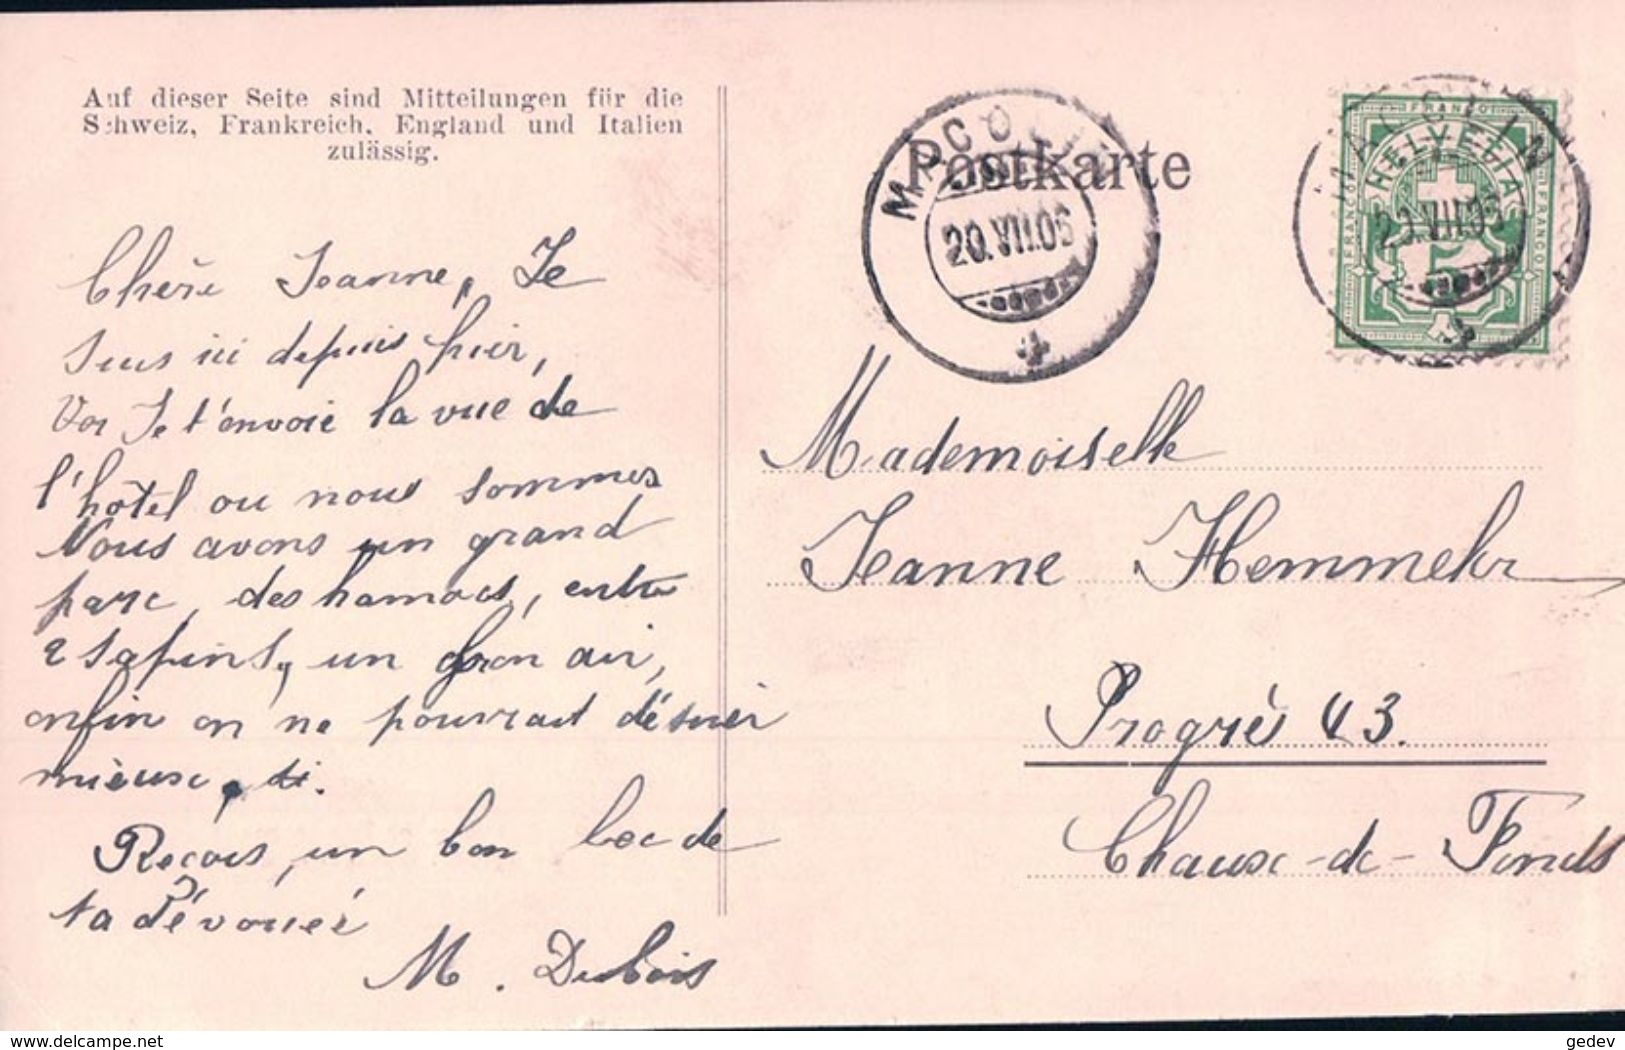 Auf dieser Seite sind Mitteilungen für die
Schweiz, Frankreich, England und Italien
zulässig.
Postkarte
MACOLIN
20.VII.06
MACOLIN
20.VII.06
FRANCO
HELVETIA
FRANCO
FRANCO
5
Chère Jeanne, Je
suis ici depuis hier,
Je t'envoie la vue de
l'hôtel ou nous sommes
Nous avons un grand
parc, des hamacs, entre
2 sapins, un bon air,
enfin on ne pourrait désirer
mieux,
Reçois un bon bec de
ta dévouée
M. Dubois
Mademoiselle
Jeanne Hemmeler
Progrès 43.
Chaux-de-Fonds
delcampe.net
gedev